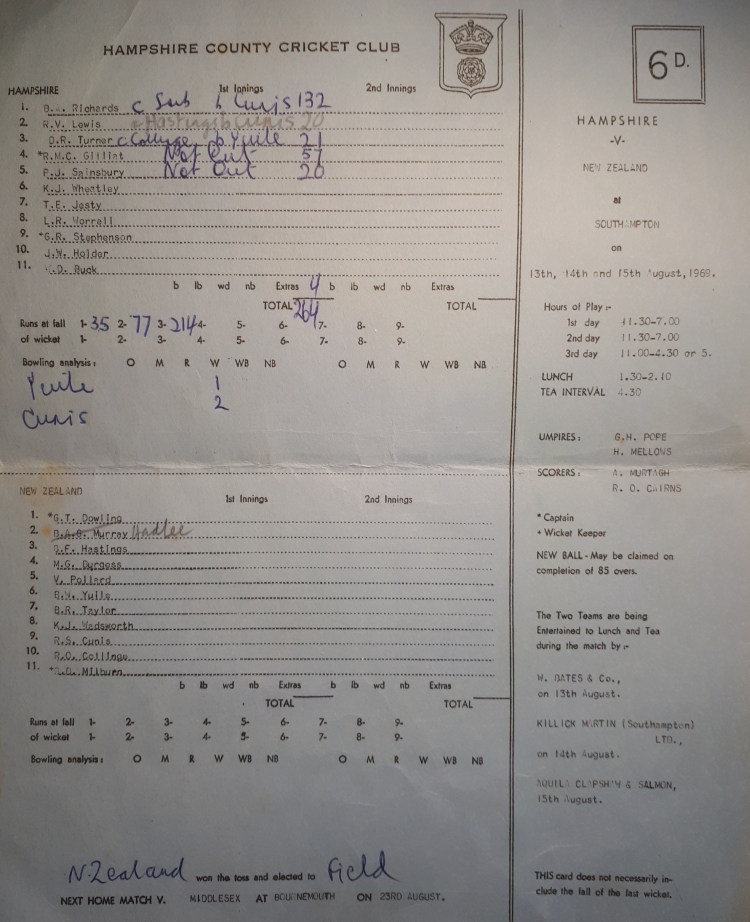 HAMPSHIRE COUNTY CRICKET CLUB
HAMPSHIRE 1st Innings 2nd Innings
1. B.A. Richards c Sub b Cunis 132
2. R.V. Lewis c Hastings b Cunis 20
3. D.R. Turner c Collinge b Yuile 21
4. *R.M.C. Gilliat Not Out 57
5. P.J. Sainsbury Not Out 26
6. K.J. Wheatley
7. T.E. Jesty
8. L.R. Worrell
9. +G.R. Stephenson
10. J.W. Holder
11. D. Buck
b lb wd nb Extras 4 b lb wd nb Extras
TOTAL 264 TOTAL
Runs at fall 1- 35 2- 77 3- 214 4- 5- 6- 7- 8- 9-
of wicket 1- 2- 3- 4- 5- 6- 7- 8- 9-
Bowling analysis: O M R W WB NB O M R W WB NB
Yuile 1
Cunis 2
NEW ZEALAND
1st Innings 2nd Innings
1. *G.T. Dowling
2. B.A.G. Murray Hadlee
3. B.F. Hastings
4. M.G. Burgess
5. V. Pollard
6. B.W. Yuile
7. B.R. Taylor
8. K.J. Wadsworth
9. R.S. Cunis
10. R.O. Collinge
11. Milburn
b lb wd nb Extras b lb wd nb Extras
TOTAL TOTAL
Runs at fall 1- 2- 3- 4- 5- 6- 7- 8- 9-
of wicket 1- 2- 3- 4- 5- 6- 7- 8- 9-
Bowling analysis: O M R W WB NB O M R W WB NB
N.Zealand won the toss and elected to Field
NEXT HOME MATCH V. MIDDLESEX AT BOURNEMOUTH ON 23RD AUGUST.
6D.
HAMPSHIRE
-V-
NEW ZEALAND
at
SOUTHAMPTON
on
13th, 14th and 15th August, 1969.
Hours of Play:-
1st day 11.30-7.00
2nd day 11.30-7.00
3rd day 11.00-4.30 or 5.
LUNCH 1.30-2.10
TEA INTERVAL 4.30
UMPIRES: G.H. POPE
H. MELLOWS
SCORERS: A. MURTAGH
R. O. CAIRNS
* Captain
+ Wicket Keeper
NEW BALL - May be claimed on
completion of 85 overs.
The Two Teams are being
Entertained to Lunch and Tea
during the match by:-
W. OATES & Co.,
on 13th August.
KILLICK MARTIN (Southampton)
LTD.,
on 14th August.
AQUILA CLAPSHAW & SALMON,
15th August.
THIS card does not necessarily in-
clude the fall of the last wicket.